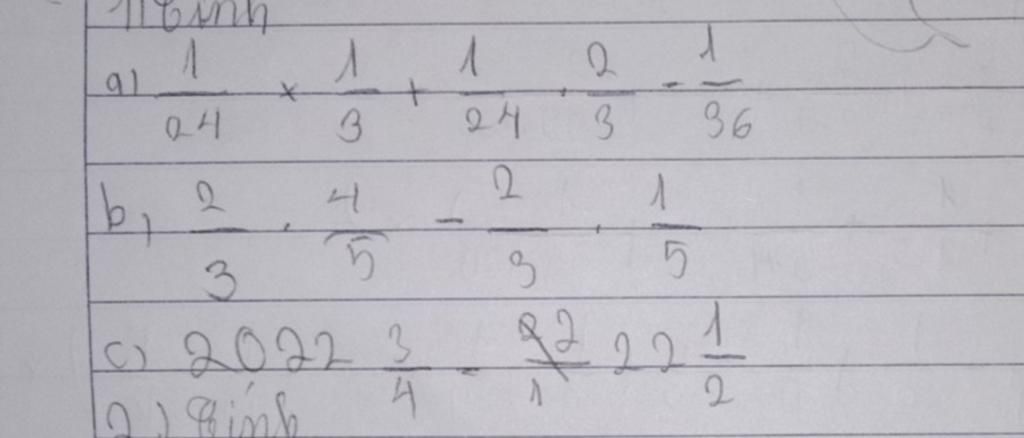 1) Tính
a) 1/24 × 1/3 + 1/24 . 2/3 - 1/36
b, 2/3 . 4/5 - 2/3 . 1/5
c) 2022 3/4 - 22 1/2
2.) Tính